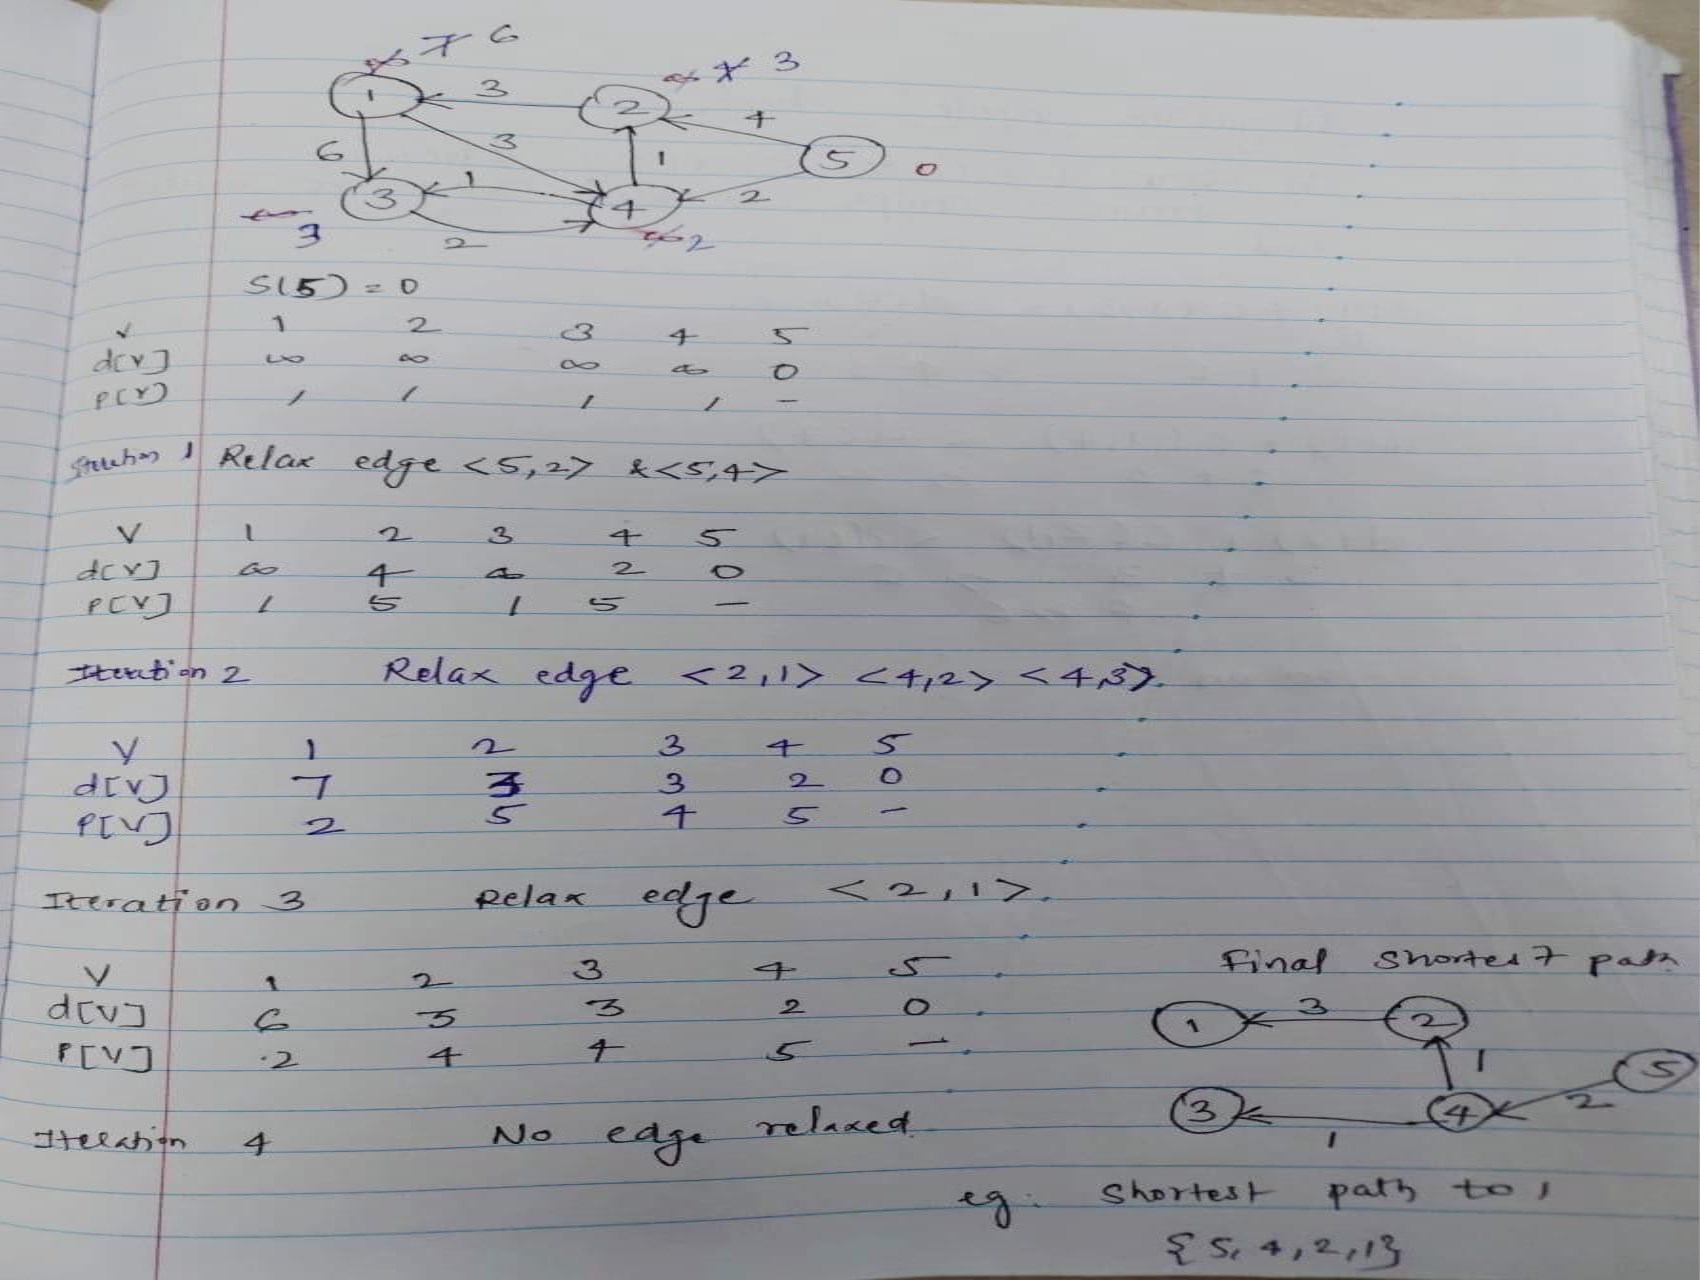 ∞ 7 6
∞ 4 3
1 3 2 4
6 3 1 5 0
3 1 4 2
∞ 3 2 ∞ 2
S(5) = 0
V 1 2 3 4 5
d[V] ∞ ∞ ∞ ∞ 0
P[V] / / / / -
Iteration 1 Relax edge <5,2> & <5,4>
V 1 2 3 4 5
d[V] ∞ 4 ∞ 2 0
P[V] / 5 / 5 —
Iteration 2 Relax edge <2,1> <4,2> <4,3>.
V 1 2 3 4 5
d[V] 7 3 3 2 0
P[V] 2 5 4 5 -
Iteration 3 Relax edge <2,1>.
V 1 2 3 4 5
d[V] 6 3 3 2 0
P[V] 2 4 4 5 —
Iteration 4 No edge relaxed
Final Shortest path
1 3 2
1 5
3 1 4 2
eg: Shortest path to 1
{5, 4, 2, 1}